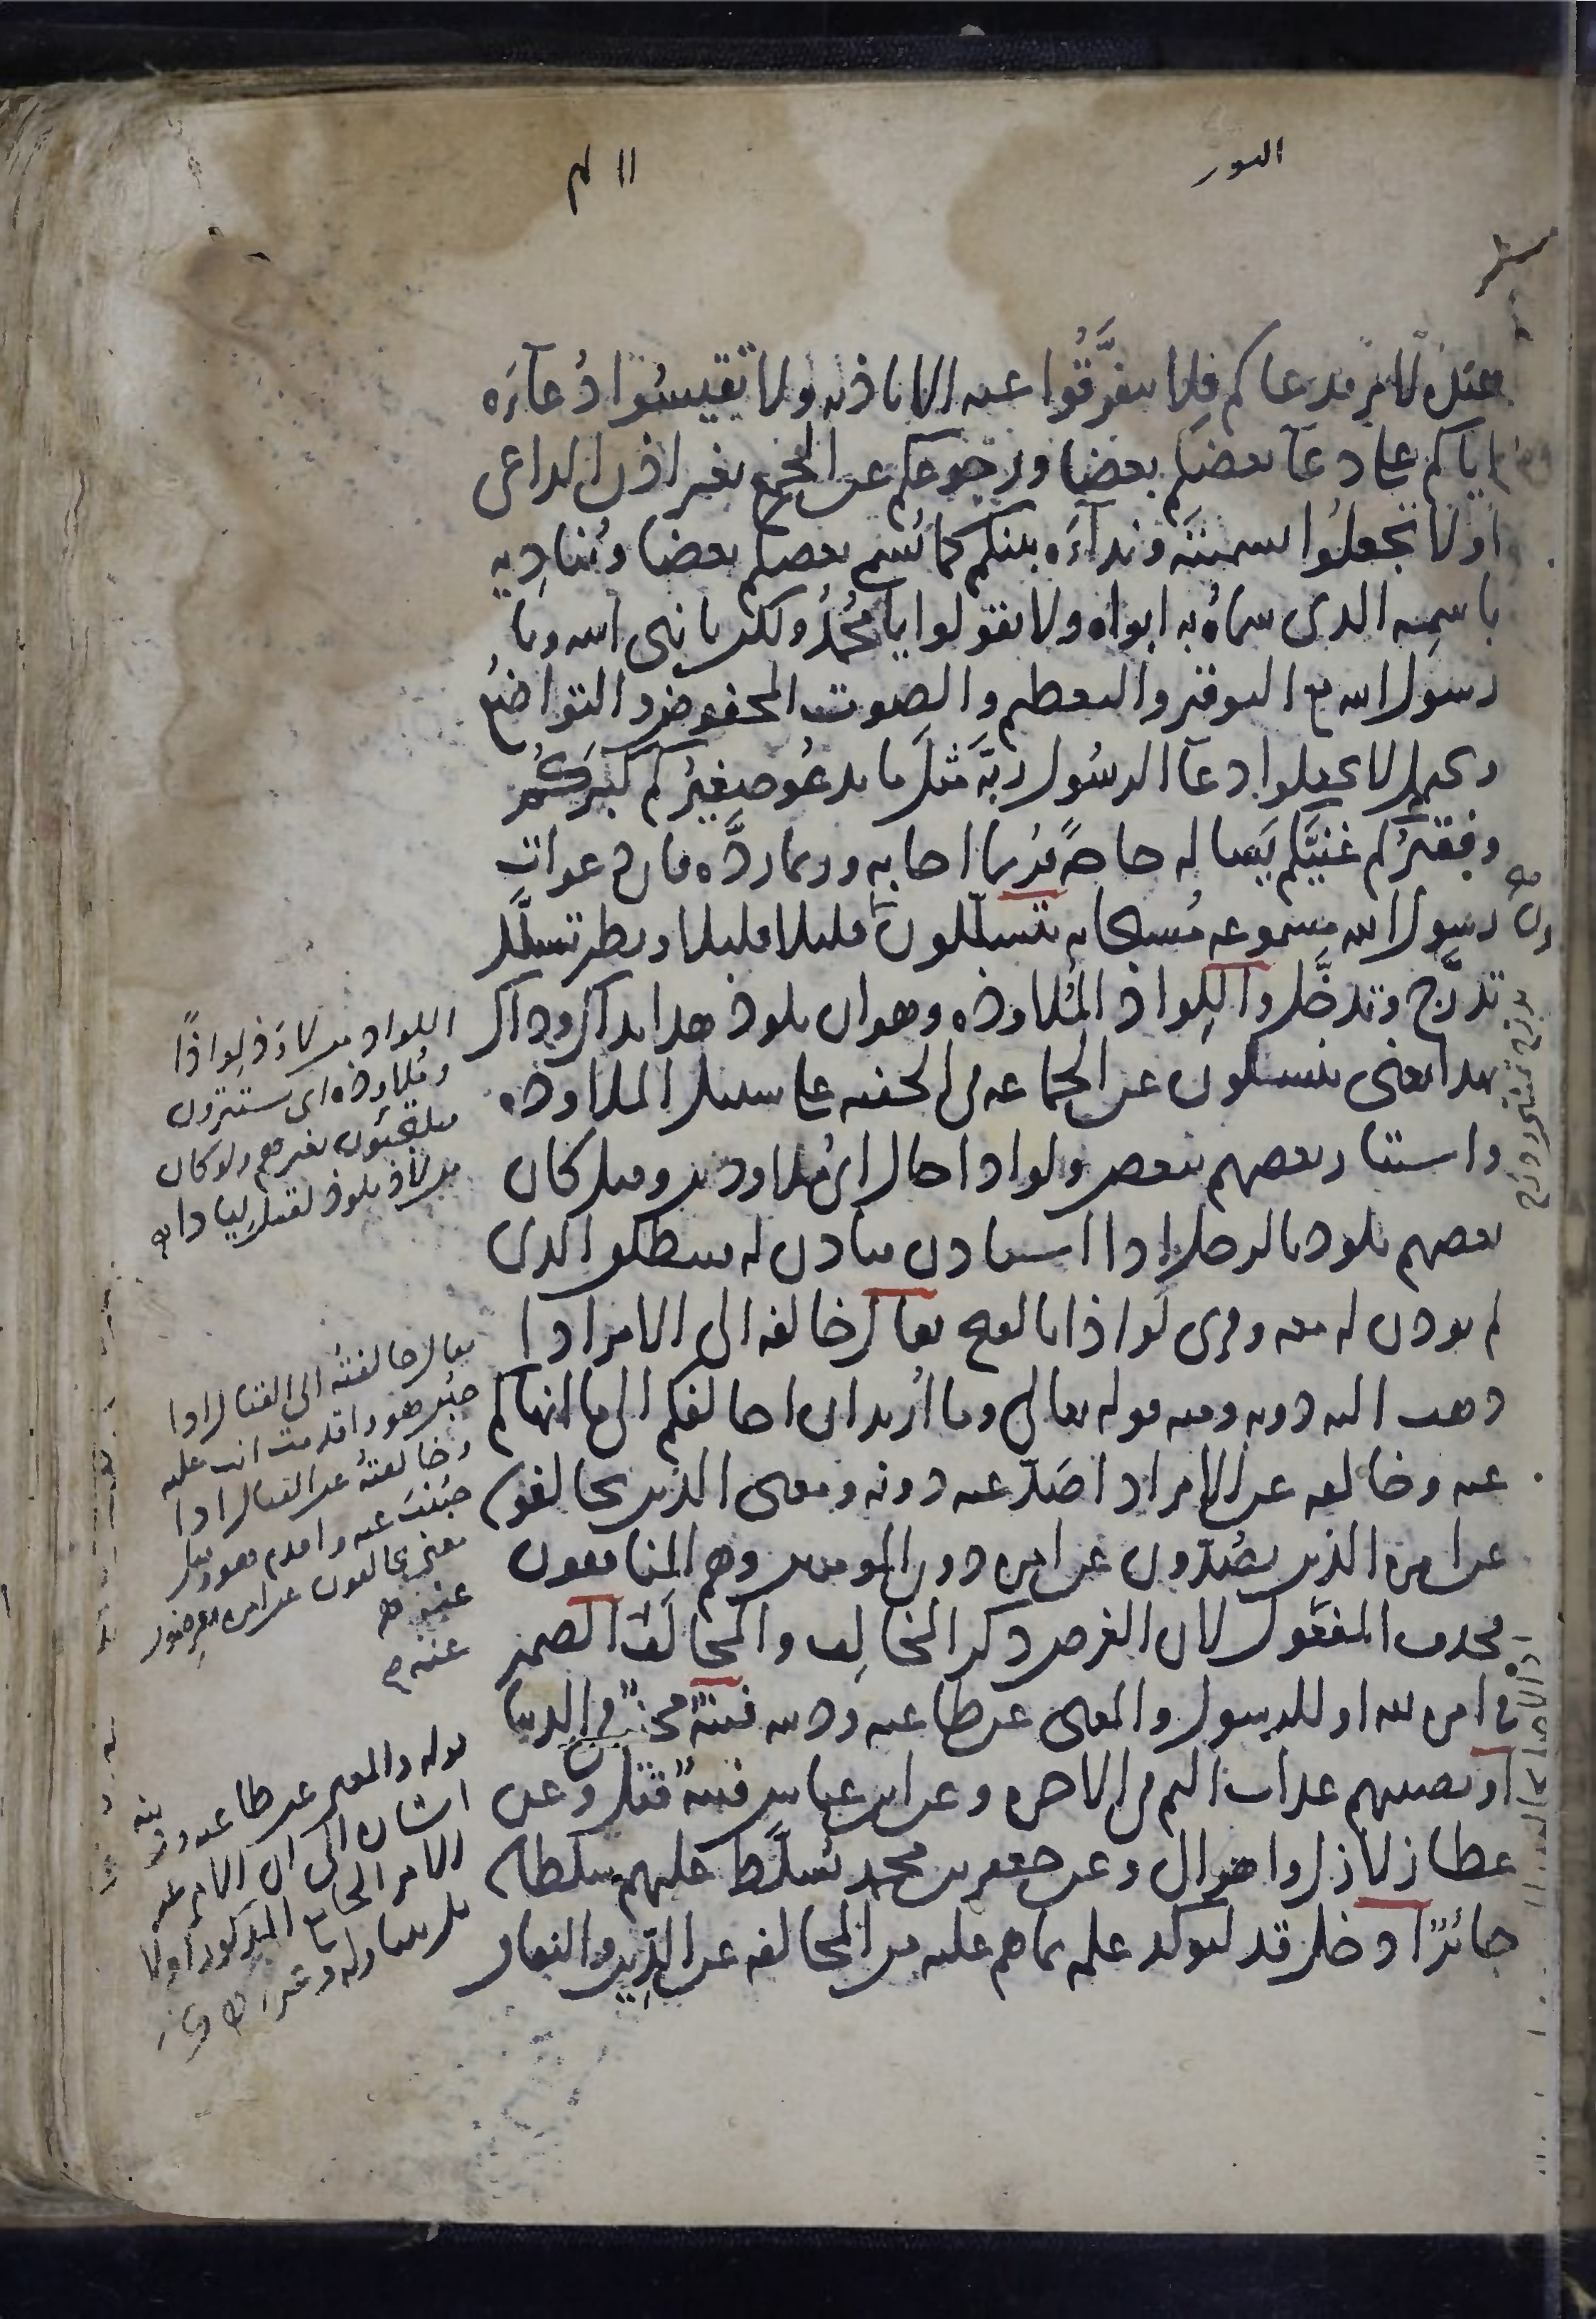 النور
١١٤
عنده لامر فدعاكم فلا تفرَّقُوا عنه الا باذنه ولا تقيسُوا دُعآءَه
اياكم على دعآ بعضكم بعضا ورجوعكم عن المجمع بغير اذن الداعى
او لا تجعلُوا تسميتَه وندآءَه بينكم كما يُسمى بعضكم بعضا ويُنادِيه
باسمِه الذى سماهُ به ابواه ولا تقولوا يا محمّدُ ولكن يا نبى الله ويا
رسولَ الله مع التوقير والتعظيم والصوت المخفوض والتواضعُ
ويحتمل لا تجعلوا دعآ الرسُول ربَّه مثلَ ما يدعُو صغيرُكم كبيرَكُم
وفقيرُكم غنيَّكم يَساله حاجةً فربما اجابه وربما ردَّه فان دعوات
رسول الله مسموعه مُستجابه يتسلّلون قليلا قليلا ونظير تسلَّل
تدرَّج وتدخَّل واللِواذ المُلاوذه وهو ان يلوذ هذا بذاك وذاك
بهذا يعنى ينسلون عن الجماعه فى الخفيه على سبيل الملاوذه
واستتار بعضهم ببعض ولواذا حال اى مُلاوذين وقيل كان
بعضهم يلوذ بالرجل اذا استاذن فياذن له فينطلق الذى
لم يوذن له معه وقرى لَواذا بالفتح يقال خالفه الى الامر اذا
ذهب اليه دونه ومنه قوله تعالى وما اُريد ان اخالفكم الى ما انهاكم
عنه وخالفه عن الامر اذا صَدّ عنه دونه ومعنى الذين يخالفون
عن امره الذين يصُدّون عن امره دون المومنين وهم المنافقون
فحذف المفعول لان الغرض ذكر المخالِف والمخالَف عنه الضمير
فى امره لله او للرسول والمعنى عن طاعته ودينه فتنةٌ محنةٌ فى الدنيا
او يصيبهم عذاب اليم فى الاخره وعن ابن عباس فتنةٌ قتلٌ وعن
عطا زلازل واهوال وعن جعفر بن محمد يُسلَّط عليهم سلطان
جائرٌ ادخل قد ليوكد علمه بما هم عليه من المخالفه عن الدِّين والنفاق
اللواذ من لاوَذ لِواذًا
ومُلاوذه اى يستترون
فيلتجئون بغيرهم ولو كان
من لاذ يلوذ لقيل لِياذا
يقال خالفتُه الى القتال اذا
جبُن هو واقدمت انت عليه
وخالفتُه عن القتال اذا
جَبُنتَ عنه واقدم هو وقيل
معنى يخالفون عن امره يعرضون
عنه
قوله والمعنى عن طاعته ودينه
اشاره الى ان الامر
الامر الجامع المذكور اولا
بل يتناوله وغيره